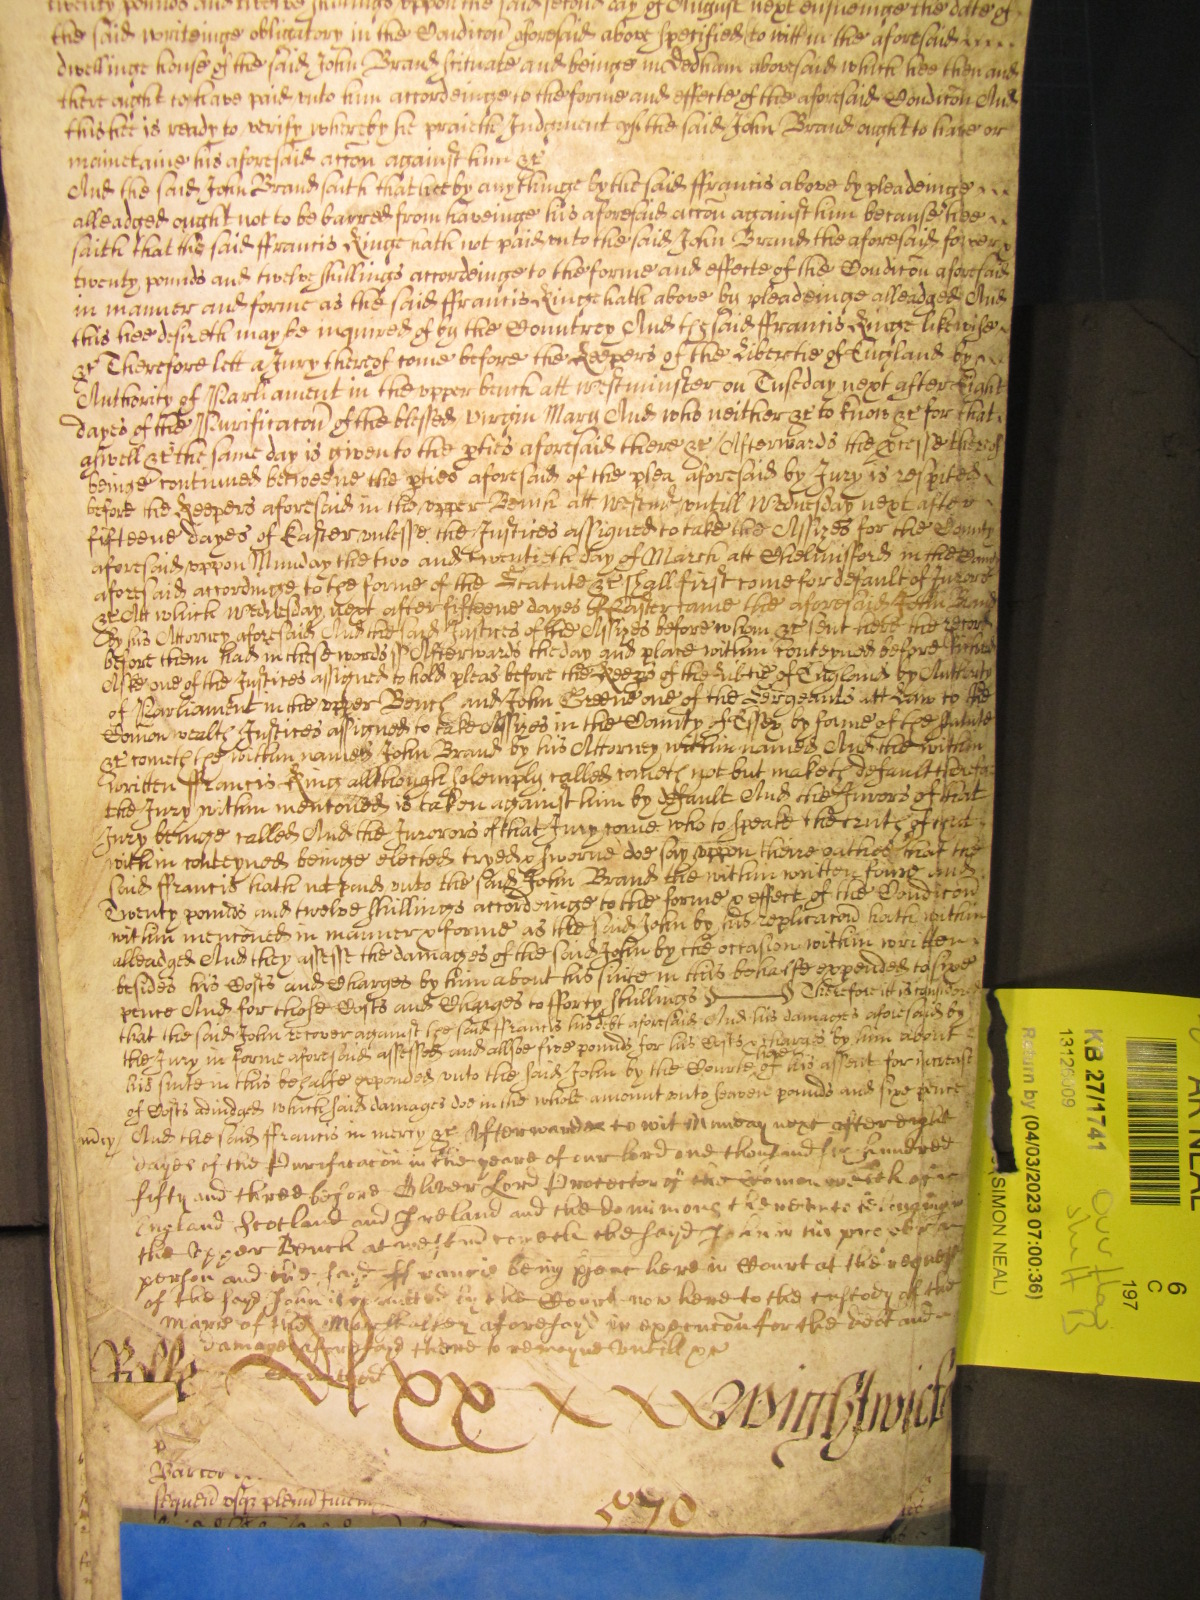 twenty pounds and twelve shillings uppon the said second day of August next ensueinge the date of
the said writeinge obligatory in the Condicon aforesaid above specified to witt in the aforesaid
dwellinge house of the said John Brand scituate and beinge in Dedham abovesaid which hee then and
there ought to have paid unto him accordeinge to the forme and effecte of the aforesaid Condicon And
this hee is ready to verify whereby he praieth Judgment yf the said John Brand ought to have or
mainetaine his aforesaid accon against him &c
And the said John Brand saith that hee by any thinge by the said ffrancis above by pleadeinge
alleadged ought not to be barred from haveinge his aforesaid accon against him because hee
saith that the said ffrancis Kinge hath not paid unto the said John Brand the aforesaid fower
twenty pounds and twelve shillings accordeinge to the forme and effecte of the Condicon aforesaid
in manner and forme as the said ffrancis Kinge hath above by pleadeinge alleadged And
this hee desireth may be inquired of by the Countrey And the said ffrancis Kinge likewise
&c Therefore lett a Jury thereof come before the Keepers of the libertie of England by
Authority of Parliament in the upper bench att Westminster on Tuseday next after Eight
dayes of the Purificacon of the blessed virgin Mary And who neither &c to know &c for that
aswell &c the same day is given to the pties aforesaid there &c Afterwards the Processe thereof
beinge continued betweene the pties aforesaid of the plea aforesaid by Jury is respited
before the Keepers aforesaid in the upper Bench att Westmr untill Wednesday next after
fifteene dayes of Easter unlesse the Justices assigned to take the Assizes for the County
aforesaid uppon Munday the two and twentieth day of March att Chelmisford in the County
aforesaid accordinge to the forme of the Statute &c shall first come for default of Jurors
&c Att which Wednesday next after fifteene dayes of Easter came the aforesaid John Brand
by his Attorney aforesaid And the said Justices of the Assizes before whom &c sent here the record
before them had in these words ss Afterwards the day and place within conteyned before
Aske one of the Justices assigned to hold pleas before the Keeps of the libtie of England by Authority
of Parliament in the upper Bench and John Greene one of the Sergeants att Law to the
Comon wealth Justices assigned to take Assizes in the County of Essex by forme of the Statute
&c cometh the within named John Brand by his Attorney within named And the within
written ffrancis King allthough solemply called cometh not but maketh default therefore
the Jury within mentoned is taken against him by default And the Jurors of that
Jury beinge called And the Jurorors of that Jury come who to speake the truth of
within conteyned beinge elected tryed & sworne doe say uppon there oathes that the
said ffrancis hath not paid unto the said John Brand the within written fower and
Twenty pounds and twelve shillings accordeinge to the forme & effect of the Condicon
within mentoned in manner & forme as the said John by his replicacon hath within
alleadged And they assesse the damages of the said John by the occasion within written
besides his Costs and Charges by him about his suite in this behalfe expended to sixe
pence And for those Costs and Charges to fforty shillings Therefore it is considered
that the said John recover against the said ffrancis his debt aforesaid And his damages aforesaid by
the Jury in forme aforesaid assessed and allsoe five pounds for his Costs & charges by him about
his suite in this behalfe expended unto the said John by the Courte here of his assent for increase
of Costs adiudged which said damages doe in the whole amount unto seaven pounds and sixe pence
mcy And the said ffrancis in mercy &c Afterwards to wit Munday next after eight
dayes of the Purificacon in the yeare of our lord one thousand six hundred
fifty and three before Oliver Lord Protector of the Comon wealth of
England Scotland and Ireland and the dominions thereunto belonging
the Upper Bench at Westm cometh the sayd John in his
person and the sayd ffrancis being psent here in Court at the request
of the sayd John is comitted by the Court now here to the custody of the
Marrs of the Marshalsey aforesayd in execucon for the debt and
damages aforesayd there to remayne untill &c
Rolle
Wightwick
5070
KB 27/1741
13126009
Return by (04/03/2023 07:00:36)
(SIMON NEAL)
6
C
197